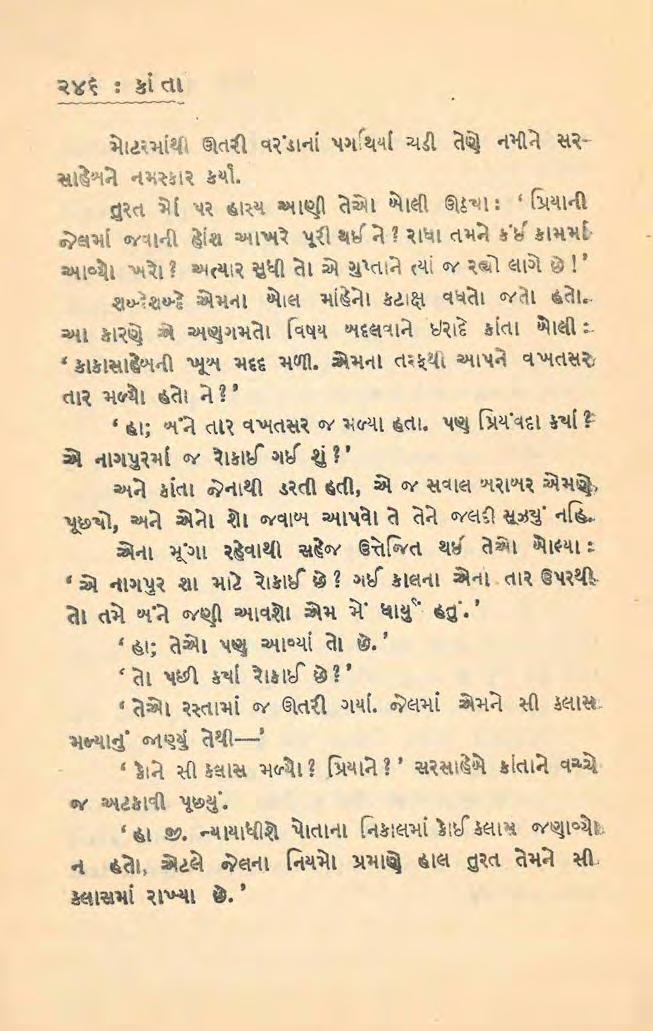 ૨૪૬ : કાંતા
મોટરમાંથી ઊતરી વરંડાનાં પગથિયાં ચડી તેણે નમીને સર-
સાહેબને નમસ્કાર કર્યાં.
તુરત મોં પર હાસ્ય આણી તેઓ બોલી ઊઠ્યા : ‘ પ્રિયાની
જેલમાં જવાની હોંશ આખરે પૂરી થઈ ને ? રાધા તમને કંઈ કામમાં
આવ્યો ખરો ? અત્યાર સુધી તો એ ગુપ્તાને ત્યાં જ રહ્યો લાગે છે ! ’
શબ્દેશબ્દે એમના બોલ માંહેનો કટાક્ષ વધતો જતો હતો.
આ કારણે એ અણગમતો વિષય બદલવાને ઇરાદે કાંતા બોલી :
‘ કાકાસાહેબની ખૂબ મદદ મળી. એમના તરફથી આપને વખતસર
તાર મળ્યો હતો ને ? ’
‘ હા; બંને તાર વખતસર જ મળ્યા હતા. પણ પ્રિયંવદા ક્યાં ?
એ નાગપુરમાં જ રોકાઈ ગઈ શું ? ’
અને કાંતા જેનાથી ડરતી હતી, એ જ સવાલ બરાબર એમણે
પૂછ્યો, અને એનો શો જવાબ આપવો તે તેને જલદી સૂઝ્યું નહિ.
એના મૂંગા રહેવાથી સહેજ ઉત્તેજિત થઈ તેઓ બોલ્યા :
‘ એ નાગપુર શા માટે રોકાઈ છે ? ગઈ કાલના એના તાર ઉપરથી
તો તમે બંને જણી આવશો એમ મેં ધાર્યું હતું. ’
‘ હા; તેઓ પણ આવ્યાં તો છે. ’
‘ તો પછી ક્યાં રોકાઈ છે ? ’
‘ તેઓ રસ્તામાં જ ઊતરી ગયાં. જેલમાં એમને સી ક્લાસ
મળ્યાનું જાણ્યું તેથી—’
‘ કોને સી ક્લાસ મળ્યો ? પ્રિયાને ? ’ સરસાહેબે કાંતાને વચ્ચે
જ અટકાવી પૂછ્યું.
‘ હા જી. ન્યાયાધીશે પોતાના નિકાલમાં કોઈ ક્લાસ જણાવ્યો
ન હતો, એટલે જેલના નિયમો પ્રમાણે હાલ તુરત તેમને સી
ક્લાસમાં રાખ્યા છે. ’